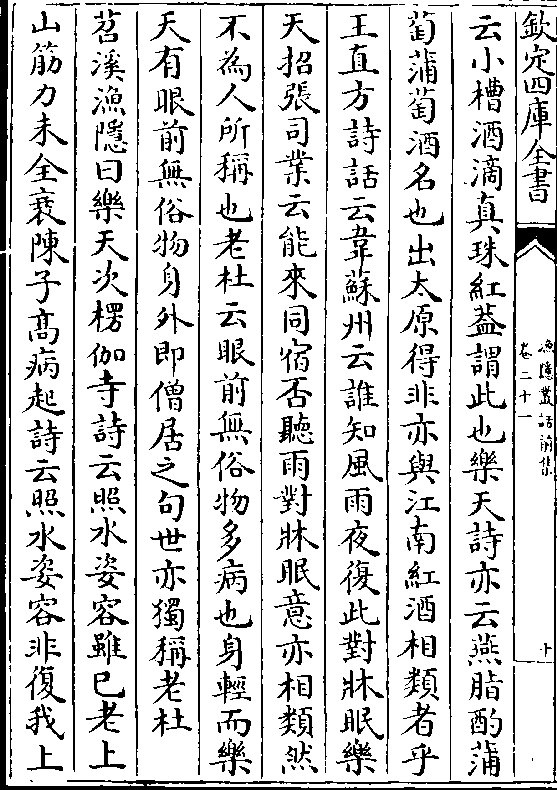 欽定四庫全書
漁隱叢話前集
卷二十一
十
云小槽酒滴真珠紅葢謂此也樂天詩亦云燕脂酌蒲
萄蒲萄酒名也出太原得非亦與江南紅酒相類者乎
王直方詩話云韋蘇州云誰知風雨夜復此對牀眠樂
天招張司業云能來同宿否聽雨對牀眠意亦相類然
不為人所稱也老杜云眼前無俗物多病也身輕而樂
天有眼前無俗物身外即僧居之句世亦獨稱老杜
苕溪漁隱曰樂天次楞伽寺詩云照水姿容雖已老上
山筋力未全衰陳子髙病起詩云照水姿容非復我上